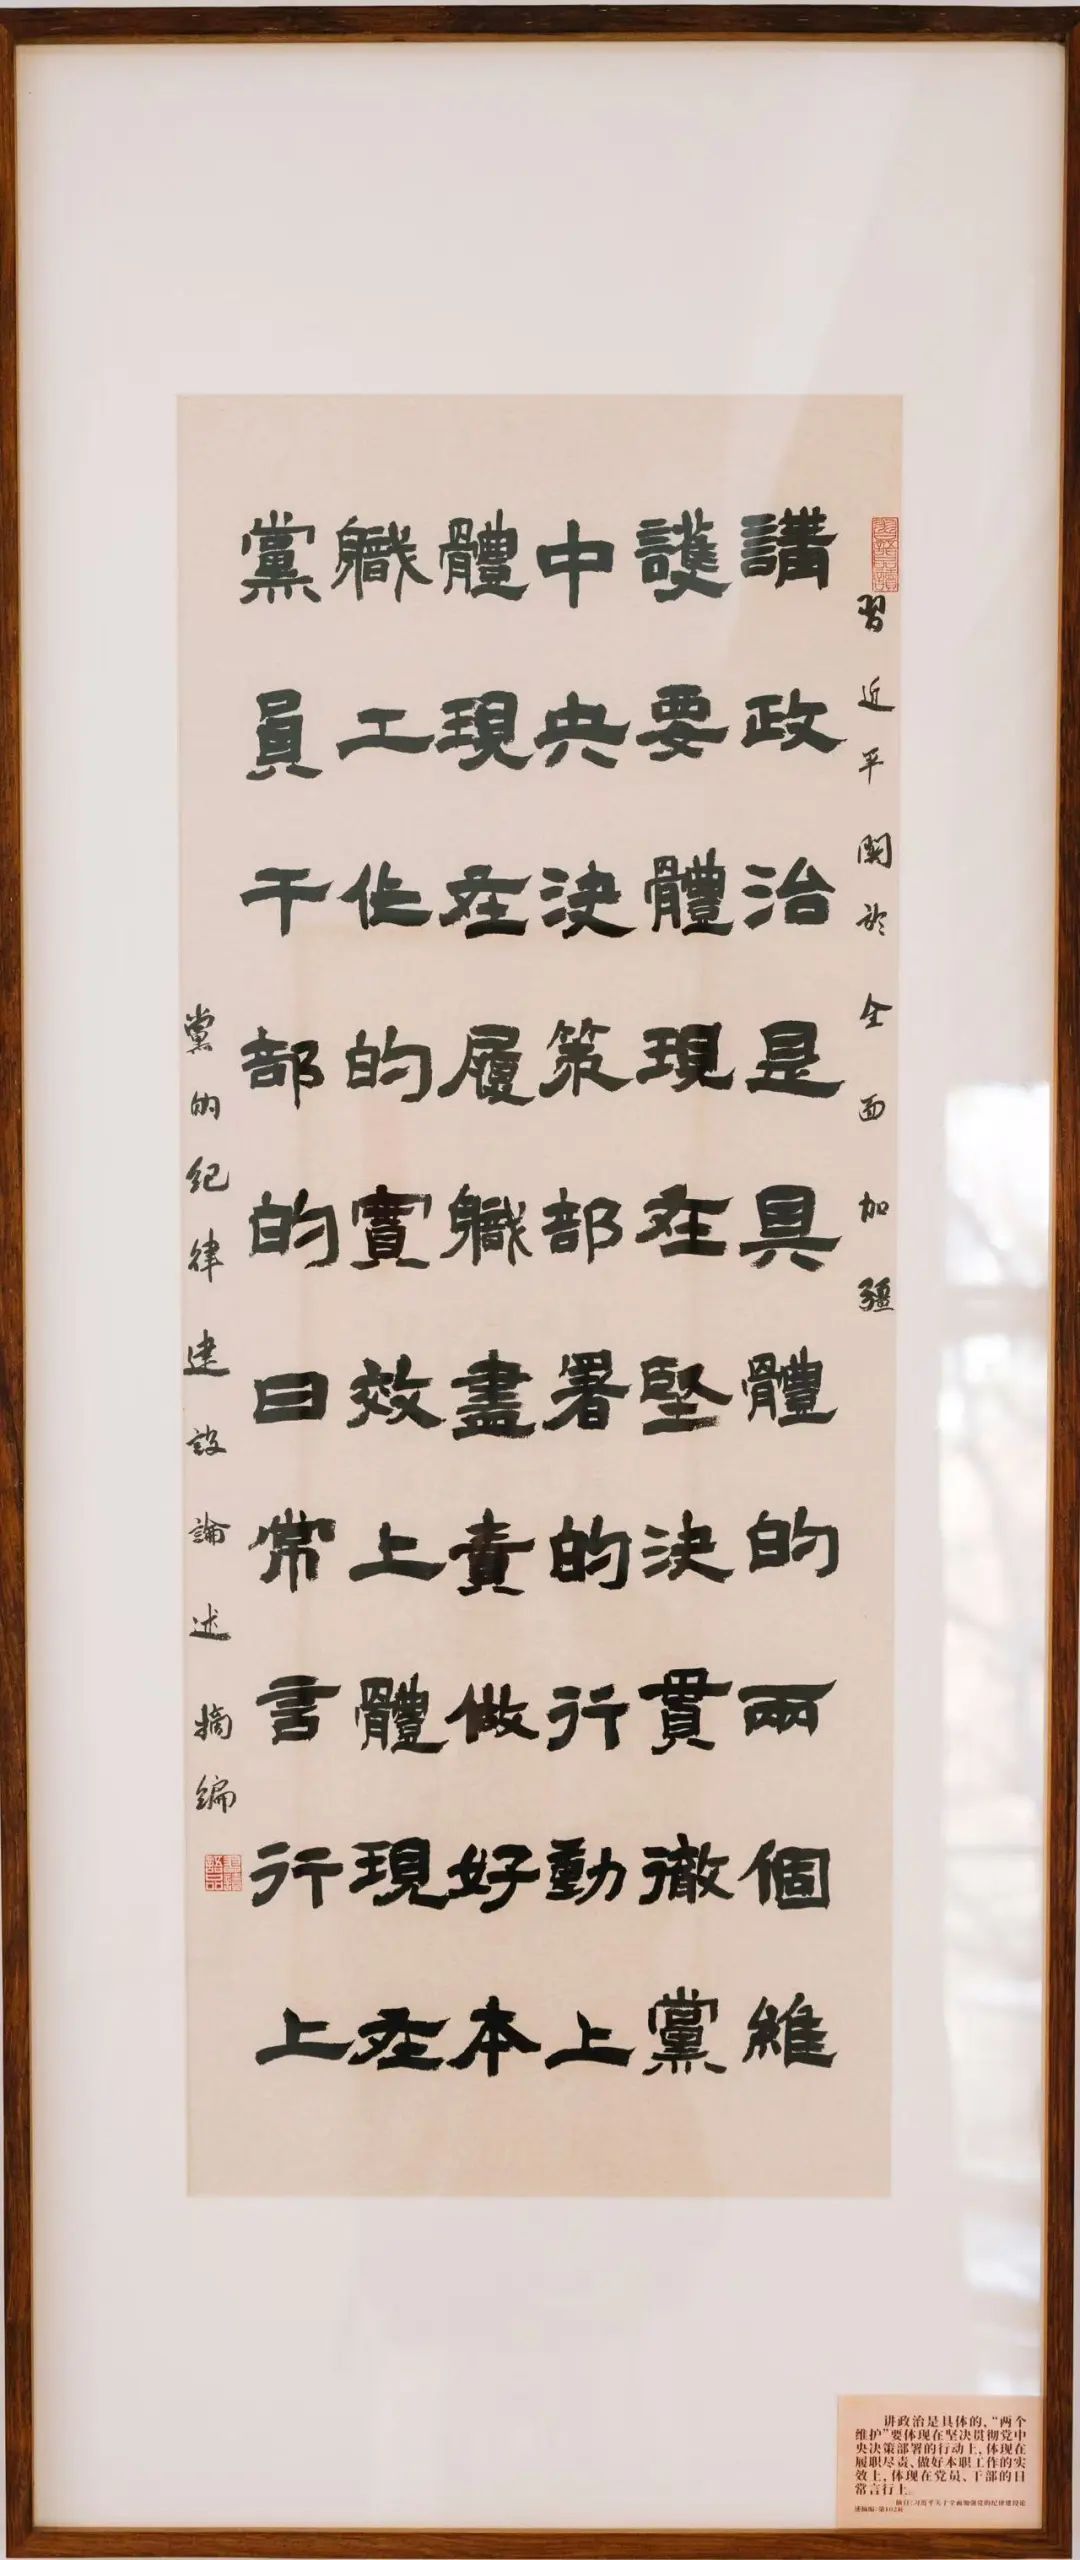 習近平關於全面加強
講政治是具體的兩個維
護要體現在堅決貫徹黨
中央決策部署的行動上
體現在履職盡責做好本
職工作的實效上體現在
黨員干部的日常言行上
黨的紀律建設論述摘編
讲政治是具体的，“两个
维护”要体现在坚决贯彻党中
央决策部署的行动上，体现在
履职尽责、做好本职工作的实
效上，体现在党员、干部的日
常言行上。
摘自：习近平关于全面加强党的纪律建设论
述摘编·第102页